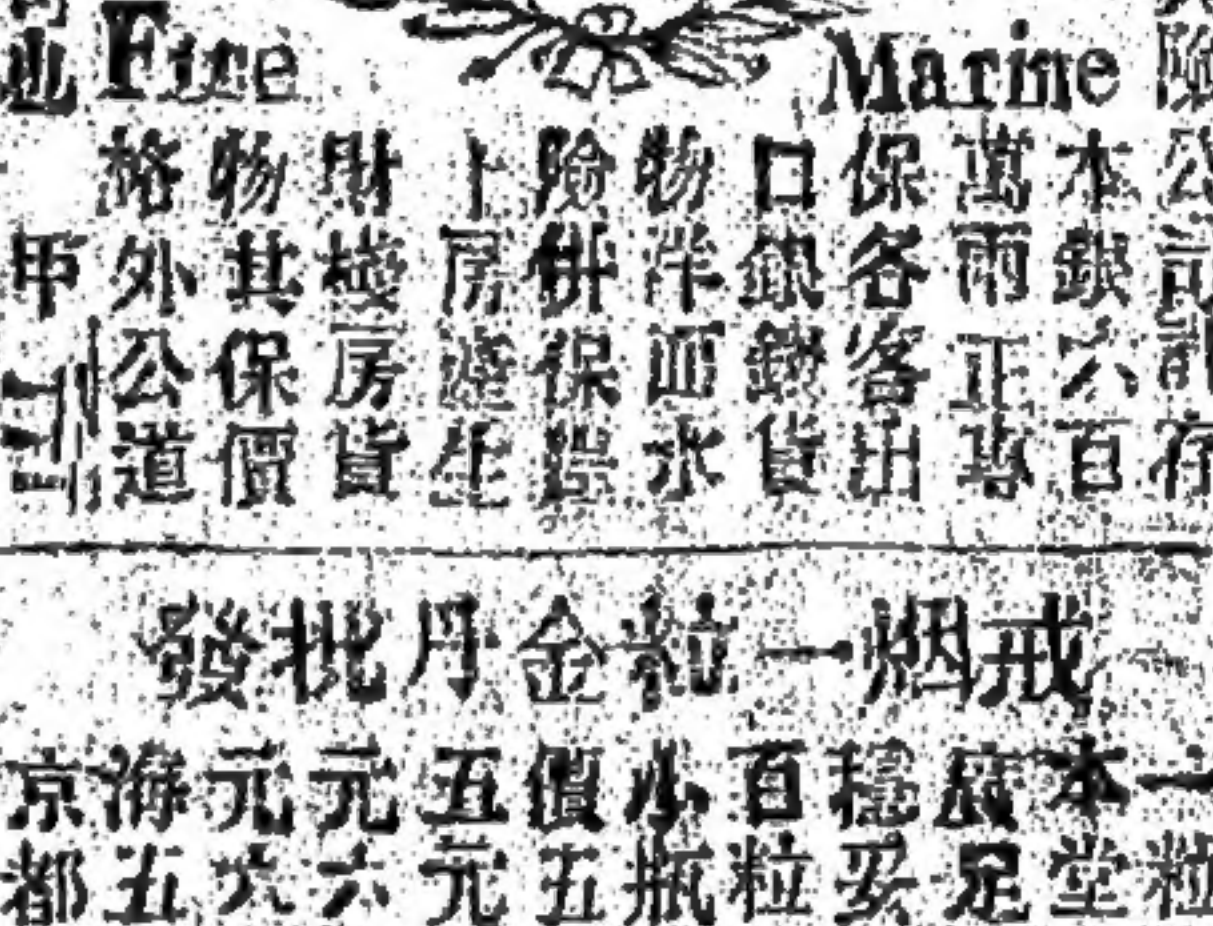 Fire
Marine
險
公司
存
本銀六百
萬兩正專
保各客出
口銀錢貨
物洋面水
險併保
上房產生
財棧房貨
物其保價
格外公道
甲
戒烟一粒金丹批發
一粒
本堂
足
穩妥
百粒
小瓶
價五
五元
元六
元六
海五
京都